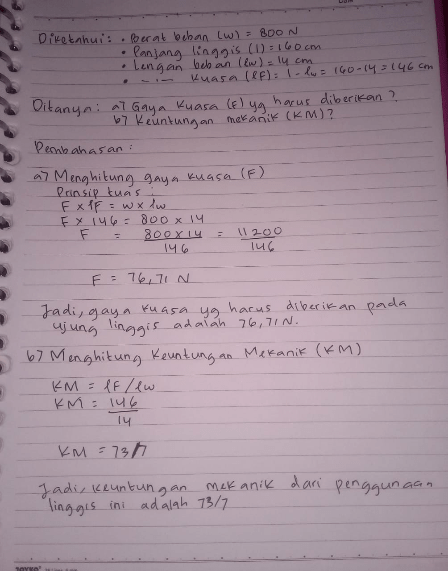 Diketahui : • Berat beban (w) = 800 N
• Panjang linggis (l) = 160 cm
• Lengan beban (lw) = 14 cm
• –··– Kuasa (lF) = l - lw = 160 - 14 = 146 cm
Ditanya : a) Gaya Kuasa (F) yg harus diberikan ?
b) Keuntungan mekanik (KM) ?
Pembahasan :
a) Menghitung gaya kuasa (F)
Prinsip tuas :
F x lF = w x lw
F x 146 = 800 x 14
F = 800 x 14 / 146 = 11200 / 146
F = 76,71 N
Jadi, gaya kuasa yg harus diberikan pada
ujung linggis adalah 76,71 N.
b) Menghitung Keuntungan Mekanik (KM)
KM = lF / lw
KM = 146 / 14
KM = 73/7
Jadi, keuntungan mekanik dari penggunaan
linggis ini adalah 73/7